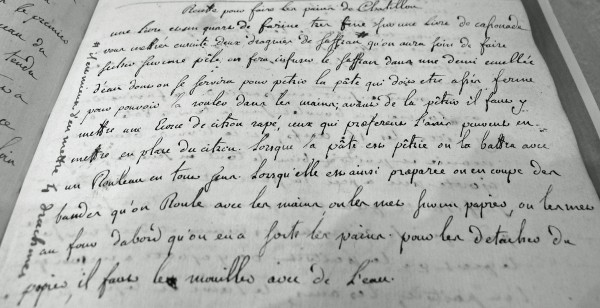 Recette pour faire les pains de Chatillon
une livre et un quart de farine tres fine sur une livre de cassonade
vous mettrés ensuite deux dragmes de saffran qu'on aura soin de faire
sécher sur une pele, on fera infuser le saffran dans une demi emullée
d'eau dont on se servira pour pétrir la pâte qui doit etre assés ferme
pour pouvoir la rouler dans les mains; avant de la pétrir il faut y
mettre une Ecorce de citron rapé, ceux qui preferent l'anis peuvent en
mettre en place du citron. Lorsque la pâte est pétrie on la battra avec
un Rouleau en tous sens. Lorsqu'elle est ainsi preparée on en coupe des
bandes qu'on Roule avec les mains on les met sur un papier, on les met
au four dabord qu'on en a sorti les pains. pour les detacher du
papier il faut les mouiller avec de L'eau.
mieux d'en mettre 4 drachmes